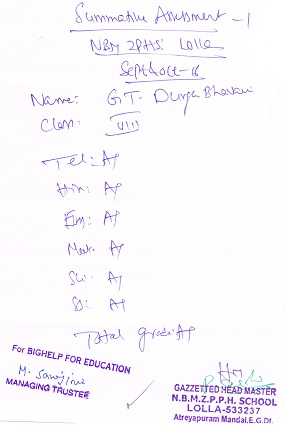 Summative Assessment - 1
NBM ZPHS Lolla
Sept & Oct - 16
Name: G.T. Durga Bhavani
Class: VIII
Tel: A+
Hin: A+
Eng: A+
Mat: A+
Sci: A+
SS: A+
Total grade: A+
For BIGHELP FOR EDUCATION
M. Sarojini
MANAGING TRUSTEE
GAZZETTED HEAD MASTER
N.B.M.Z.P.P.H. SCHOOL
LOLLA-533237
Atreyapuram Mandal.E.G.Dt.